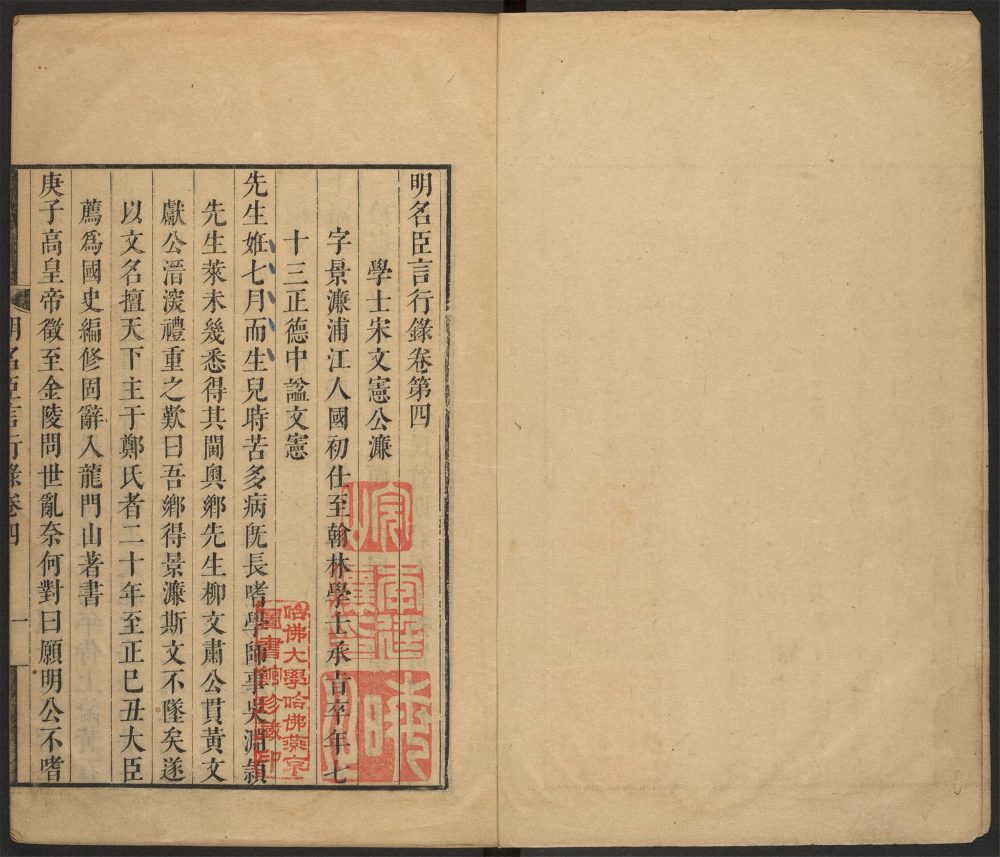 明名臣言行錄卷第四
學士宋文憲公濂
字景濂浦江人國初仕至翰林學士承旨卒年七
十三正德中諡文憲
先生姙七月而生兒時苦多病旣長嗜學師事吳淵穎
先生萊未幾悉得其閫奧鄉先生柳文肅公貫黃文
獻公溍深禮重之歎曰吾鄉得景濂斯文不墜矣遂
以文名擅天下主于鄭氏者二十年至正巳丑大臣
薦爲國史編修固辭入龍門山著書
庚子高皇帝徵至金陵問世亂奈何對曰願明公不嗜
明名臣言行錄卷四
一
哈佛大學哈佛燕京
圖書館珍藏印